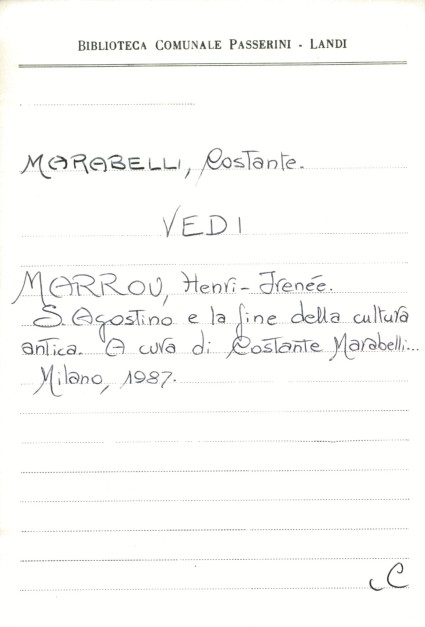 BIBLIOTECA COMUNALE PASSERINI - LANDI
MARABELLI, Costante.
VEDI
MARROU, Henri-Irenée.
S. Agostino e la fine della cultura
antica. A cura di Costante Marabelli...
Milano, 1987.
C